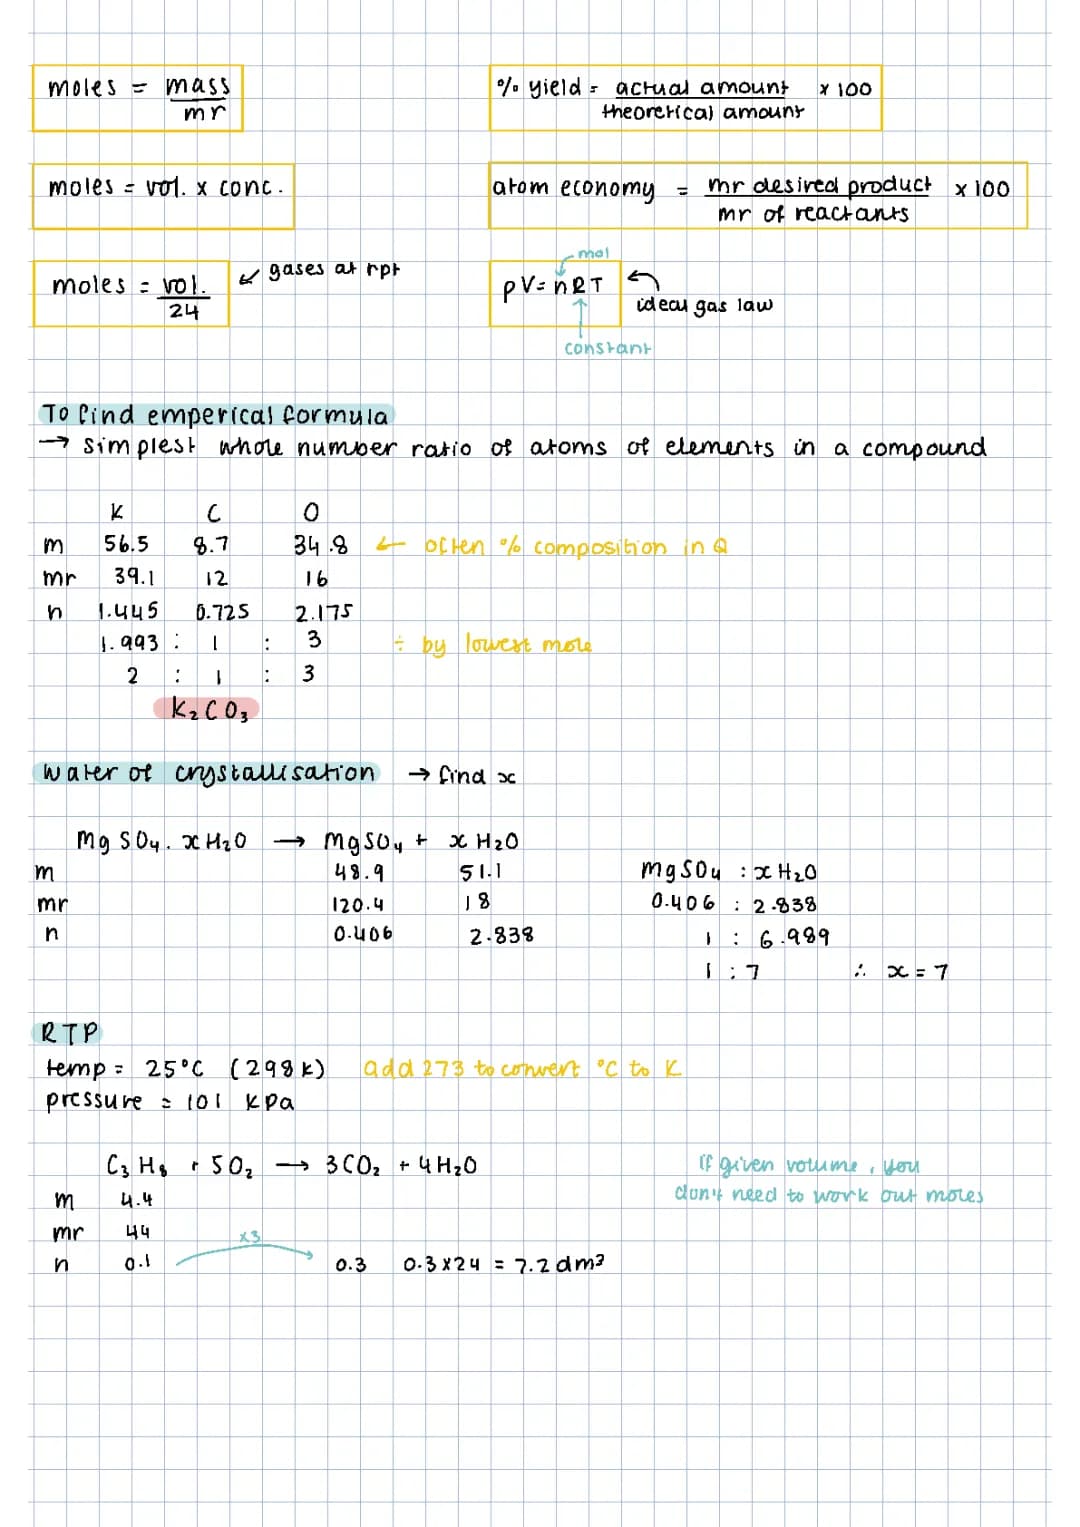 moles = mass
mr
% yield = actual amount x 100
theoretical amount
moles = vol. x conc.
atom economy = mr desired product x 100
mr of reactants
moles = vol.
24
gases at rpt
mol
pV = nRT
ideal gas law
constant
To find emperical formula
→ simplest whole number ratio of atoms of elements in a compound
K C O
m 56.5 8.7 34.8 ← often % composition in Q
mr 39.1 12 16
n 1.445 0.725 2.175
1.993 : 1 : 3 ÷ by lowest mole
2 : 1 : 3
K₂CO₃
water of crystallisation → find x
MgSO₄. xH₂O → MgSO₄ + xH₂O
m 48.9 51.1
mr 120.4 18
n 0.406 2.838
MgSO₄ : xH₂O
0.406 : 2.838
1 : 6.989
1 : 7 ∴ x = 7
RTP
temp = 25°C (298K) add 273 to convert °C to K
pressure = 101 kPa
C₃H₈ + 5O₂ → 3CO₂ + 4H₂O
m 4.4
mr 44
x3
n 0.1 0.3 0.3 x 24 = 7.2 dm³
If given volume, you
don't need to work out moles